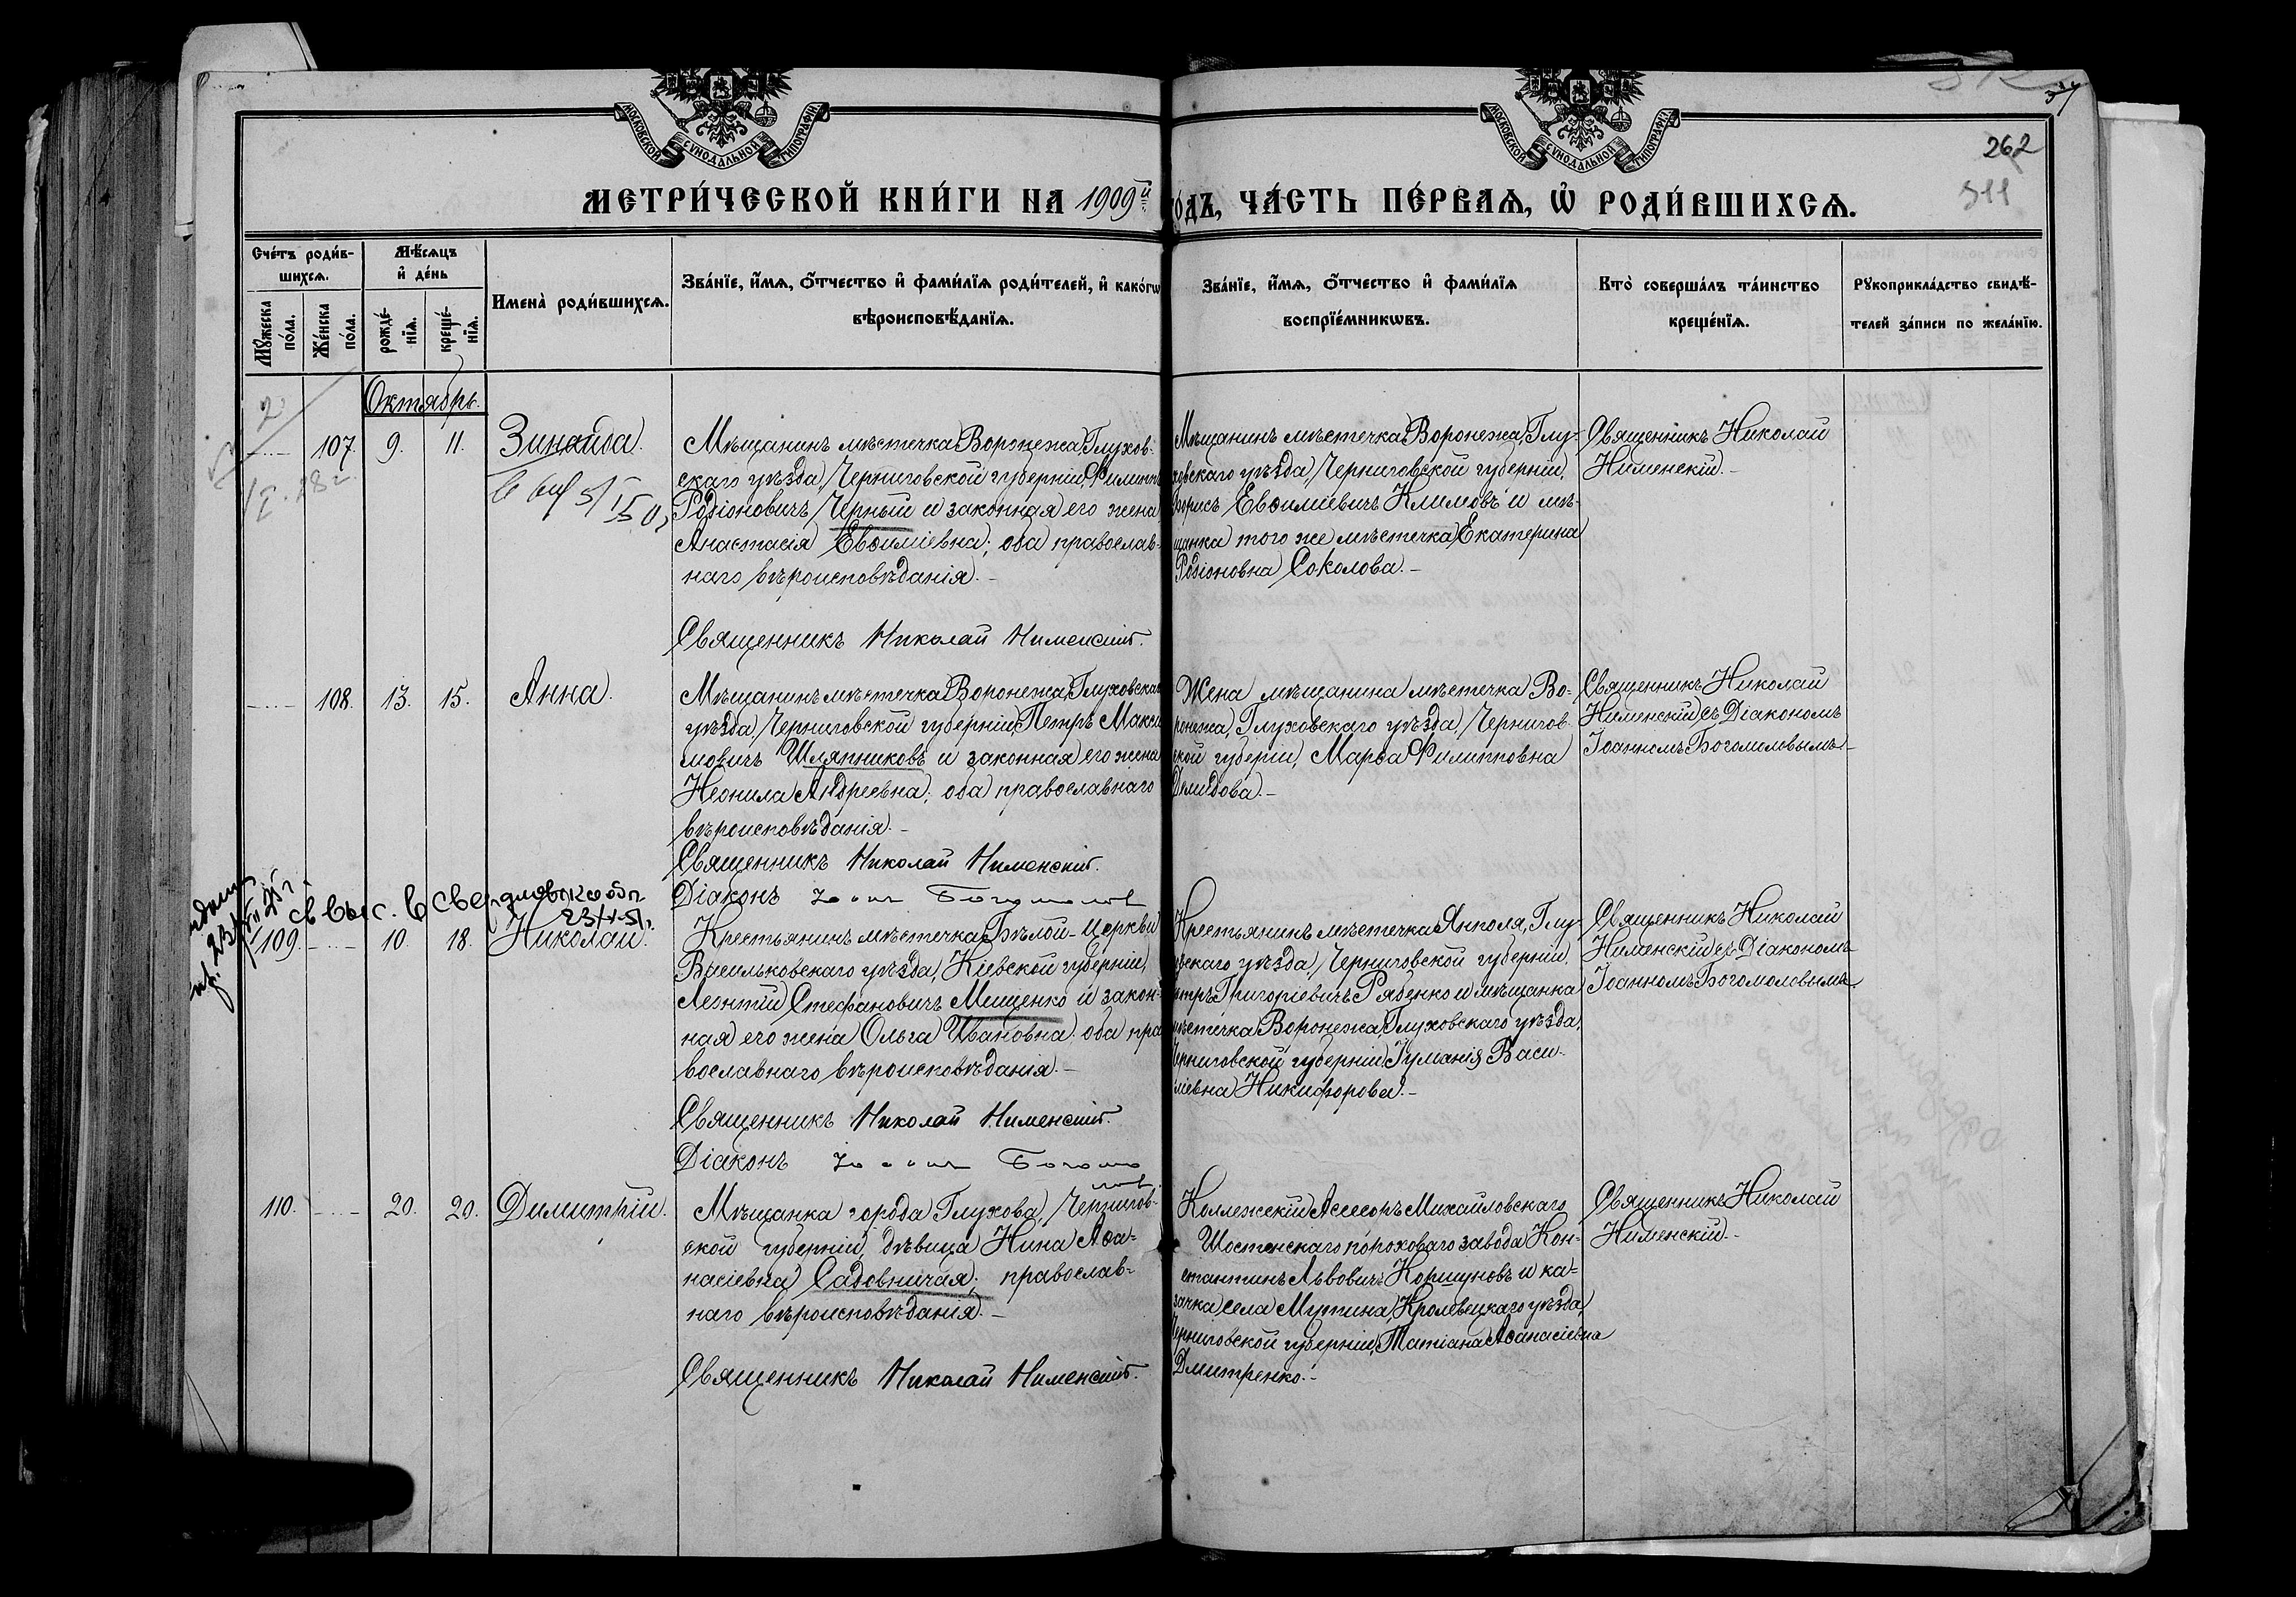 МОСКОВСКОЙ СѴНОДАЛЬНОЙ ТИПОГРАФІИ
МОСКОВСКОЙ СѴНОДАЛЬНОЙ ТИПОГРАФІИ
262
511
МЕТРИ́ЧЕСКОЙ КНИ́ГИ НА 1909й
го́дъ, ЧА́СТЬ ПЕ́РВАѦ, Ѡ҆ РОДИ́ВШИХСѦ.
Сче́тъ роди́в-
шихсѧ.
Мꙋ́жеска
по́ла.
Же́нска
по́ла.
Мѣ́сѧцъ
и҆ де́нь
рожде́-
нїѧ.
креще́-
нїѧ.
Имена̀ роди́вшихсѧ.
Зва́нїе, и҆́мѧ, ѻ҆́тчество и҆ фами́лїѧ роди́телей, и҆ како́гѡ
вѣроисповѣ́данїѧ.
Зва́нїе, и҆́мѧ, ѻ҆́тчество и҆ фами́лїѧ
воспрїе́мникѡвъ.
Кто̀ соверша́лъ та́инство
креще́нїѧ.
Рꙋкоприкла́дство свидѣ́-
телей за́писи по жела́нїю.
Октябрь.
107. 9. 11. Зинаида.
Мѣщанинъ мѣстечка Воронежа, Глухов-
скаго уѣзда, Черниговской губерніи, Филиппъ
Родіоновичъ Черный и законная его жена
Анастасія Евѳиміевна; оба православ-
наго вѣроисповѣданія.-
Священникъ Николай Нименскій.
Мѣщанинъ мѣстечка Воронежа, Глу-
ховскаго уѣзда, Черниговской губерніи,
Борисъ Евѳиміевичъ Климовъ и мѣ-
щанка того же мѣстечка Екатерина
Родіоновна Соколова.-
Священникъ Николай
Нименскій.-
108. 13. 15. Анна.
Мѣщанинъ мѣстечка Воронежа, Глуховскаго
уѣзда, Черниговской губерніи, Петръ Макси
мовичъ Шляпниковъ и законная его жена
Неонила Андреевна; оба православнаго
вѣроисповѣданія.-
Священникъ Николай Нименскій.
Діаконъ Іоаннъ Богомолов
Жена мѣщанина мѣстечка Во-
ронежа, Глуховскаго уѣзда, Чернигов
ской губерніи, Марѳа Филипповна
Демидова.-
Священникъ Николай
Нименскій съ Діакономъ
Іоанномъ Богомоловымъ-
23/V-51г.
109. 10. 18. Николай.
Крестьянинъ мѣстечка Бѣлой-Церкви
Васильковскаго уѣзда, Кіевской губерніи,
Леонтій Стефановичъ Мищенко и закон-
ная его жена Ольга Ивановна; оба пра
вославнаго вѣроисповѣданія.-
Священникъ Николай Нименскій.
Діаконъ Іоаннъ Богомо
лов.
Крестьянинъ мѣстечка Янполя, Глу-
ховскаго уѣзда, Черниговской губерніи,
Петръ Григоріевичъ Рябенко и мѣщанка
мѣстечка Воронежа, Глуховскаго уѣзда,
Черниговской губерніи, Іуліанія Васи-
ліевна Никифорова.-
Священникъ Николай
Нименскій съ Діакономъ
Іоанномъ Богомоловымъ
110. 20. 20. Димитрій.
Мѣщанка города Глухова, Чернигов-
ской губерніи, дѣвица Нина Аѳа-
насіевна Садовничая; православ-
наго вѣроисповѣданія.-
Священникъ Николай Нименскій.
Коллежскій Ассесоръ Михайловскаго
Шостенскаго пороховаго завода Кон-
стантинъ Львовичъ Коршуновъ и ка-
зачка села Мутина, Кролевецкаго уѣзда,
Черниговской губерніи, Татіана Аѳанасіевна
Дмитренко.-
Священникъ Николай
Нименскій.-